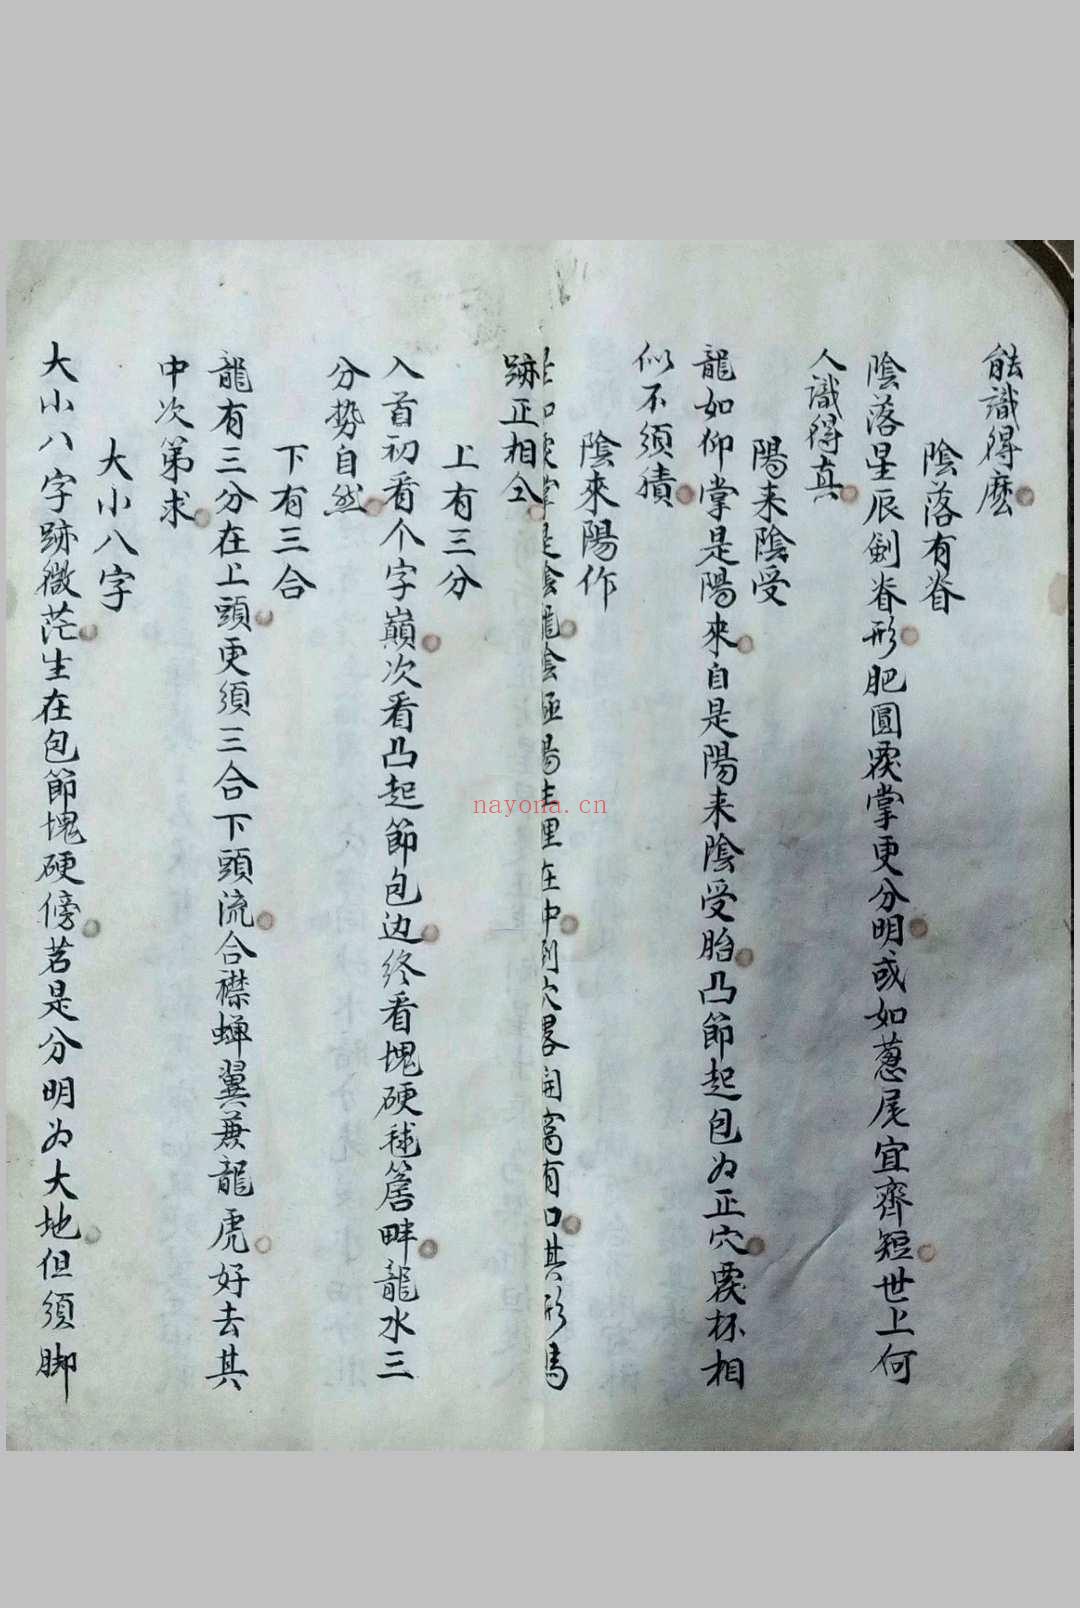 能識得麽
陰落有脊
陰落星辰劍脊形肥圓覆掌更分明或如蔥尾宜齊短世上何
人識得真
陽来陰受
龍如仰掌是陽來自是陽来陰受胎凸節起包为正穴覆杯相
似不須猜
陰來陽作
掌是陰龍陰極陽生理在中到穴畧開窩有口其形
跡正相仝
上有三分
入首初看个字巔次看凸起節包边终看塊硬毬簷畔龍水三
分势自然
下有三合
龍有三分在上頭更須三合下頭流合襟蝉翼兼龍虎好去其
中次第求
大小八字
大小八字跡微茫生在包節塊硬傍若是分明为大地但須脚
nayona.cn